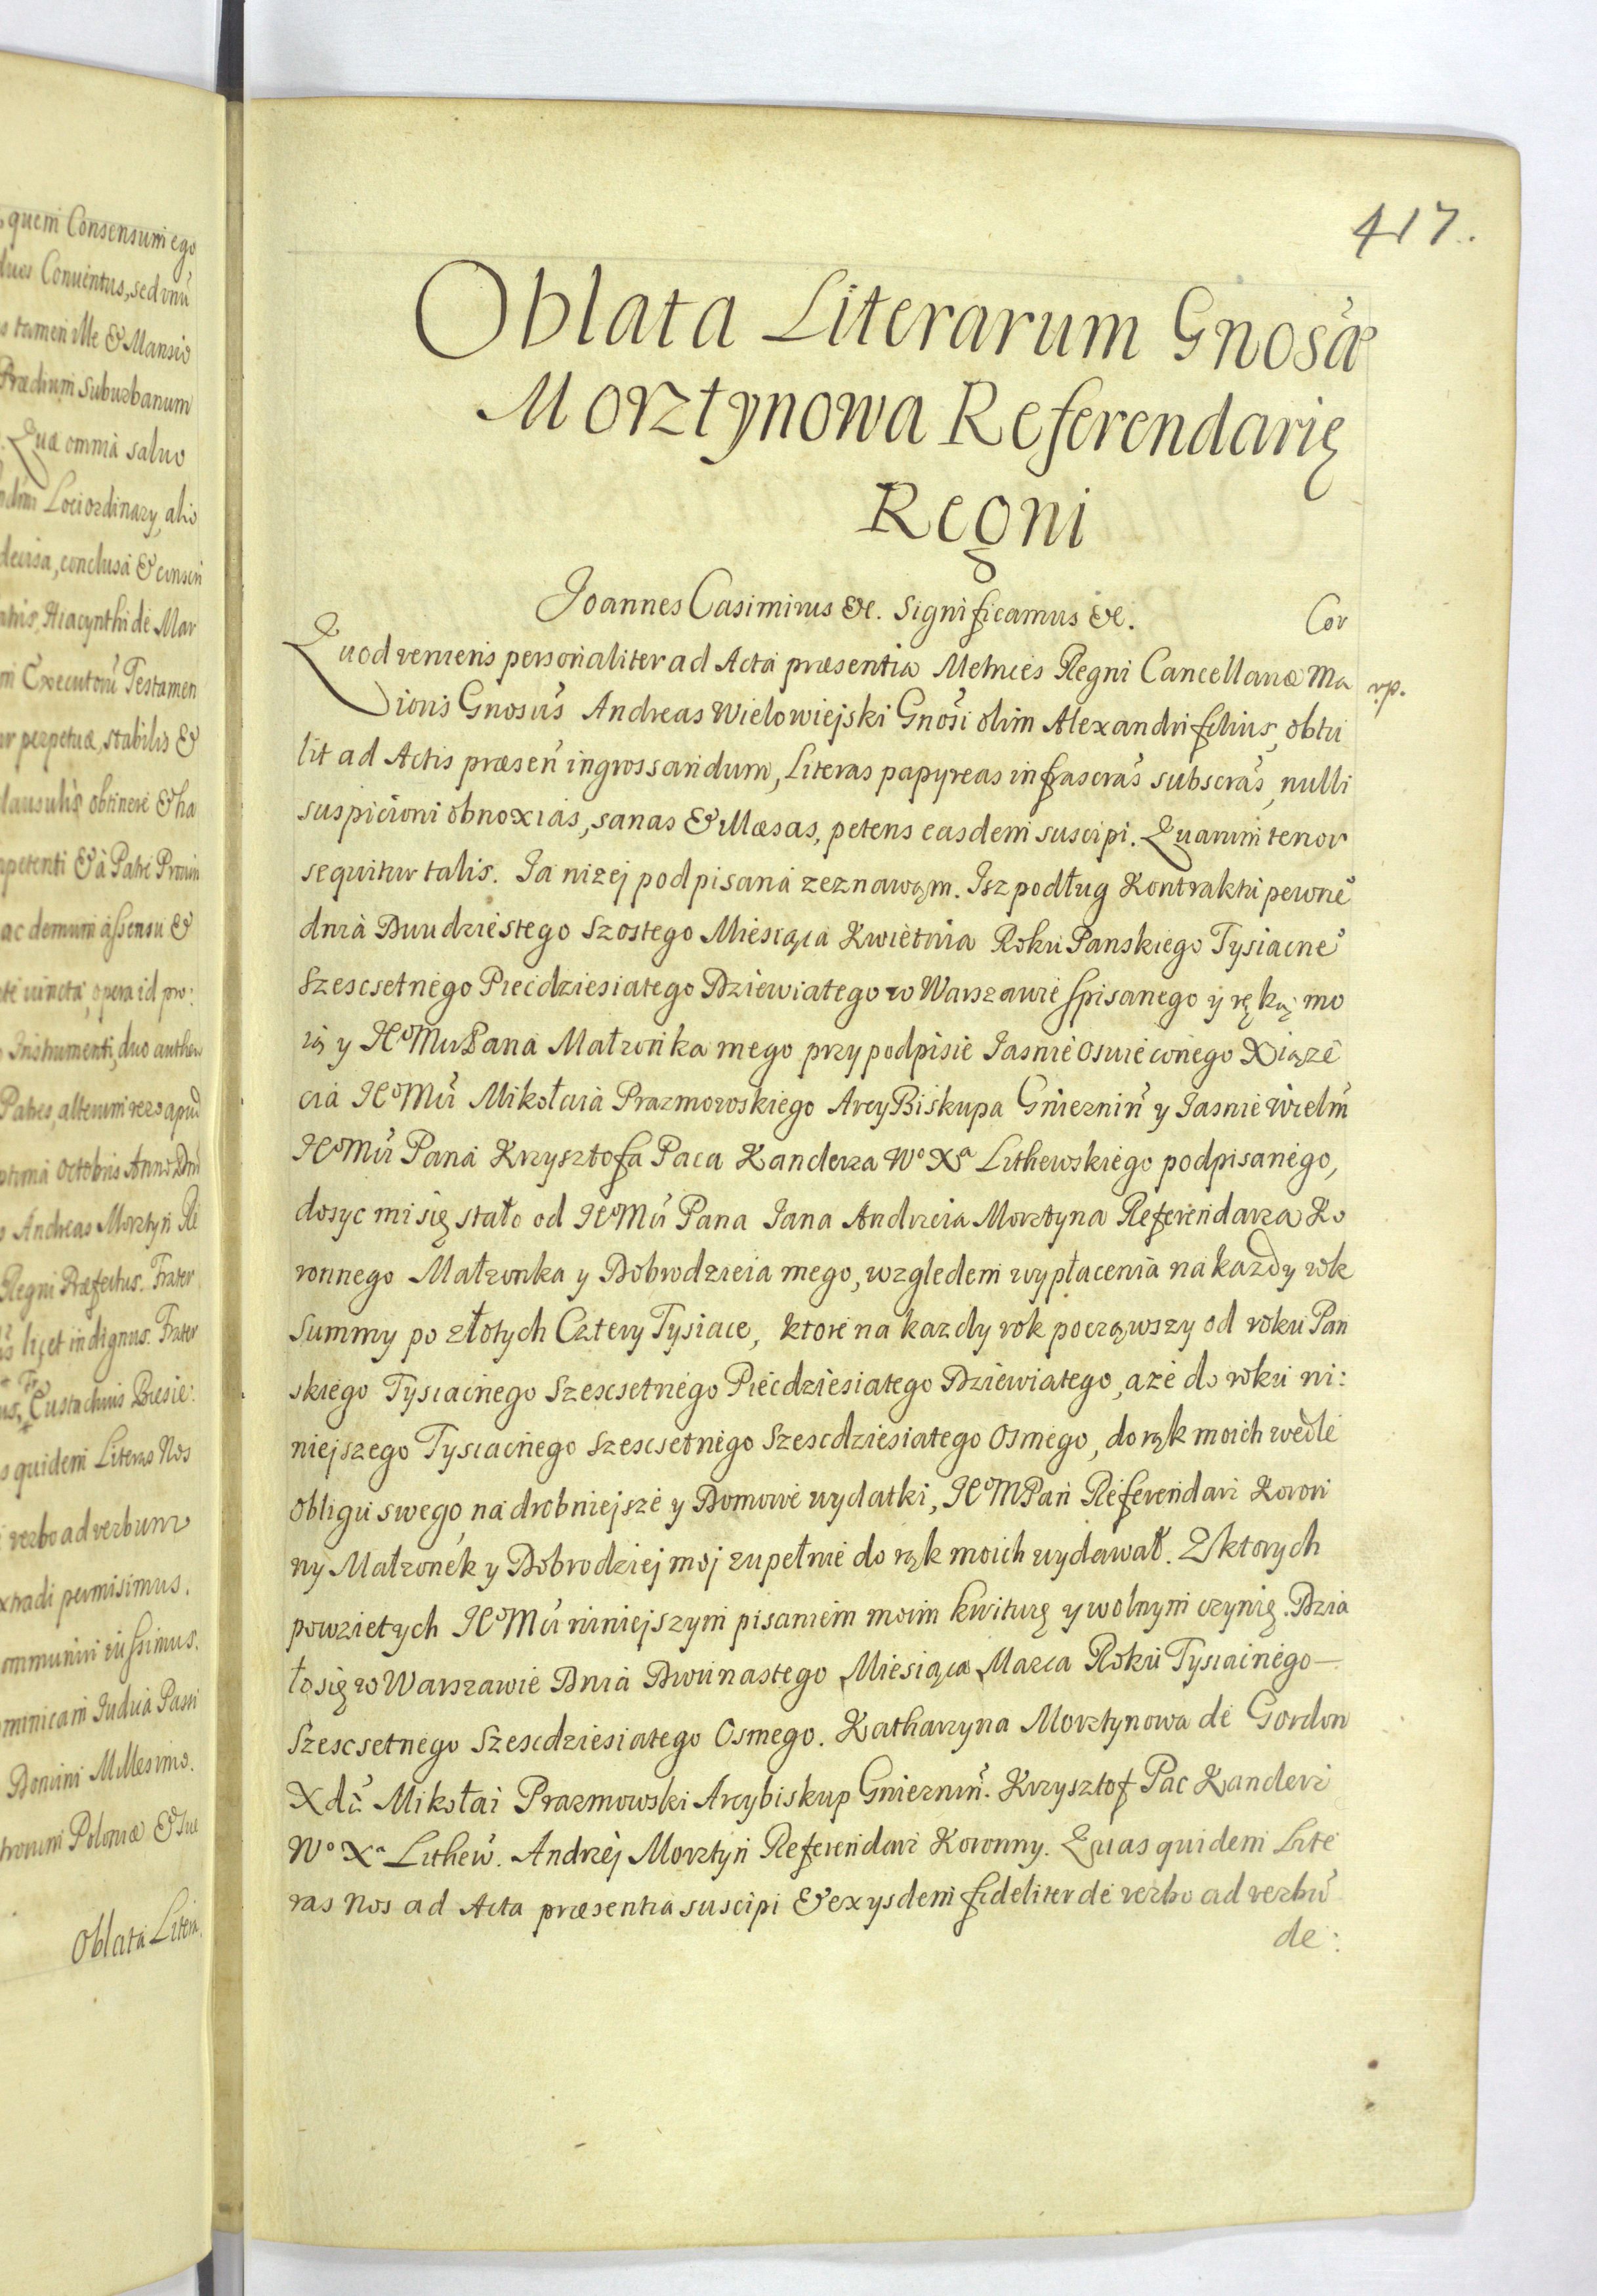 quem Consensum ego
dues Conuentus, sed vnũ
s tamen ille & Mansio
Prædium Suburbanum
. Quæ omnia saluo
Loci ordinary, alio
decisa, conclusa & consen
Hiacynthi de Mar
m Executorũ Testamen
ur perpetuæ, stabilis &
lausulis obtinere & ha
petenti & à Patre Prouin
ac demum assensu &
uincta, opera id pro:
Instrumenti, duo authen
Patres, alterum vero apud
ptima Octobris Anno Dnĩ
Andreas Morztyn Re
Regni Præfectus. Frater
licet indignus. Frater
Eustachius
s quidem Literas Nos
verbo ad verbum
xtradi permisimus.
ommuniri iussimus.
minicam Iudica Passi
Domini Millesimo.
trorum Poloniæ & Sue
Oblata Litera.
417.
Oblata Literarum Gnosæ
Morztynowa Referendarię
Regni
Joannes Casimirus &c. Significamus &c.
Cor
Quod veniens personaliter ad Acta præsentia Metrices Regni Cancellariæ Ma
rp.
ioris Gnosus Andreas Wielowiejski Gnosi olim Alexandri filius, obtu
lit ad Actis præsen ingrossandum, Literas papyreas infrascras subscras, nulli
suspicioni obnoxias, sanas & illæsas, petens easdem suscipi. Quarum tenor
sequitur talis. Ja nizej podpisana zeznawąm. Isz podług Kontraktu pewne°
dnia Dwudziestego Szostego Miesiąca Kwietnia Roku Panskiego Tysiacne°
Szescsetnego Piećdziesiatego Dziewiatego w Warszawie spisanego y ręką mo
ią y JeoMci Pana Małzonka mego przy podpisie Iasnie Oswieconego Xiąze
cia JeoMci Mikołaia Prazmowskiego ArcyBiskupa Gniezniń y Iasnie Wielm
JeoMci Pana Krzysztofa Paca Kanclerza Wo Xa Lithewskiego podpisanego,
dosyc mi się stało od JeoMci Pana Iana Andrzeia Morztyna Referendarza Ko
ronnego Małzonka y Dobrodzieia mego, wzgledem wypłacenia na kazdy rok
Summy po złotych Cztery Tysiace, ktore na kazdy rok począwszy od roku Pan
skiego Tysiacnego Szescsetnego Piećdziesiatego Dziewiatego, aże do roku ni:
niejszego Tysiacnego Szescsetnego Szescdziesiatego Osmego, do rąk moich wedle
obligu swego, na drobniejsze y Domowe wydatki, JeoMPan Referendarz Koron
ny Małzonek y Dobrodziej moj zupełnie do rąk moich wydawał. Z ktorych
powzietych JeoMci niniejszym pisaniem moim kwituię y wolnym czynię. Dzia
ło się w Warszawie Dnia Dwunastego Miesiąca Marca Roku Tysiacnego —
Szescsetnego Szescdziesiatego Osmego. Katharzyna Morztynowa de Gordon
Mikołai Prazmowski Arcybiskup Gniezniń. Krzysztof Pac Kanclerz
Wo Xa Lithew. Andrzej Morztyn Referendarz Koronny. Quas quidem Lite
ras Nos ad Acta præsentia suscipi & ex ysdem fideliter de verbo ad verbũ
de: